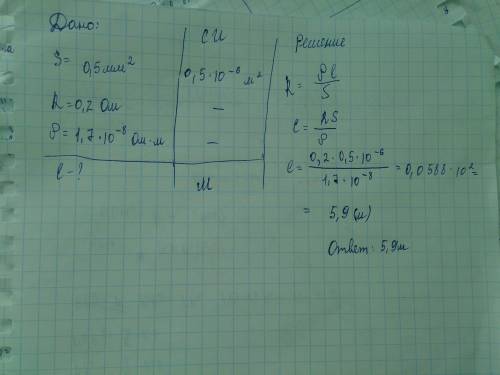 Дано:
S = 0,5 мм²
R = 0,2 Ом
ρ = 1,7·10⁻⁸ Ом·м
l - ?
СИ
0,5·10⁻⁶ м²
—
—
м
Решение
R = ρl/S
l = RS/ρ
l = 0,2·0,5·10⁻⁶/1,7·10⁻⁸ = 0,0588·10² =
= 5,9 (м)
Ответ: 5,9 м